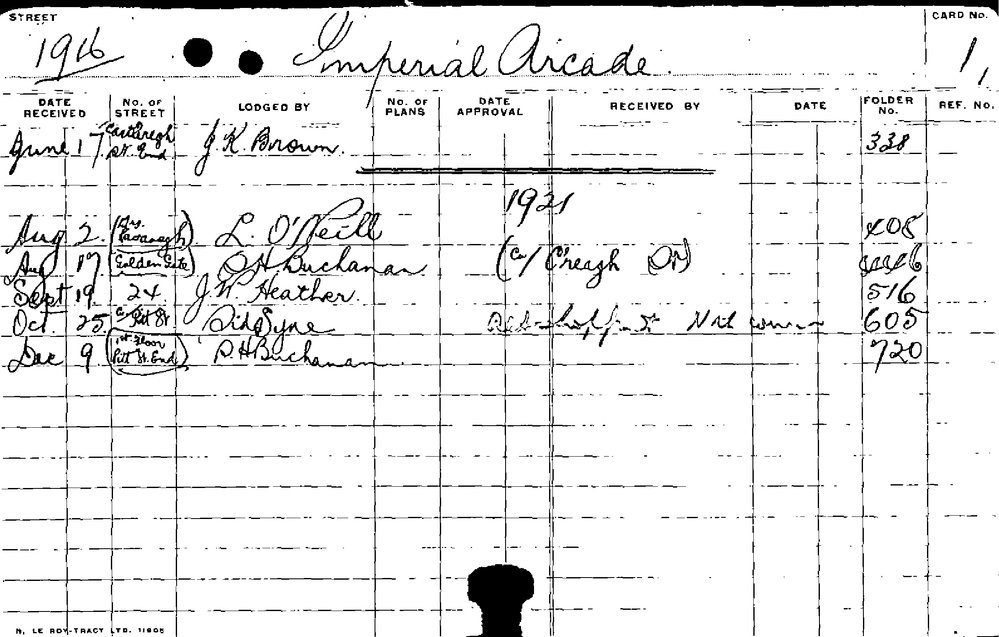 STREET CARD No.
1916 Imperial Arcade 1,
DATE RECEIVED No. OF STREET LODGED BY No. OF PLANS DATE APPROVAL RECEIVED BY DATE FOLDER No. REF. No.
June 17 Castlereagh St. End J. K. Brown. 338
1921
Aug 2. L. O'Neill 408
Aug 17 (Golden Gate) Buchanan (C/ C'reagh St)
Sept 19 24 J. W. Heather. 516
Oct. 25 Pitt St Syne 605
Dec 9 (1st Floor Pitt St. End) Buchanan 720
N. LE ROY-TRACY LTD. 11605